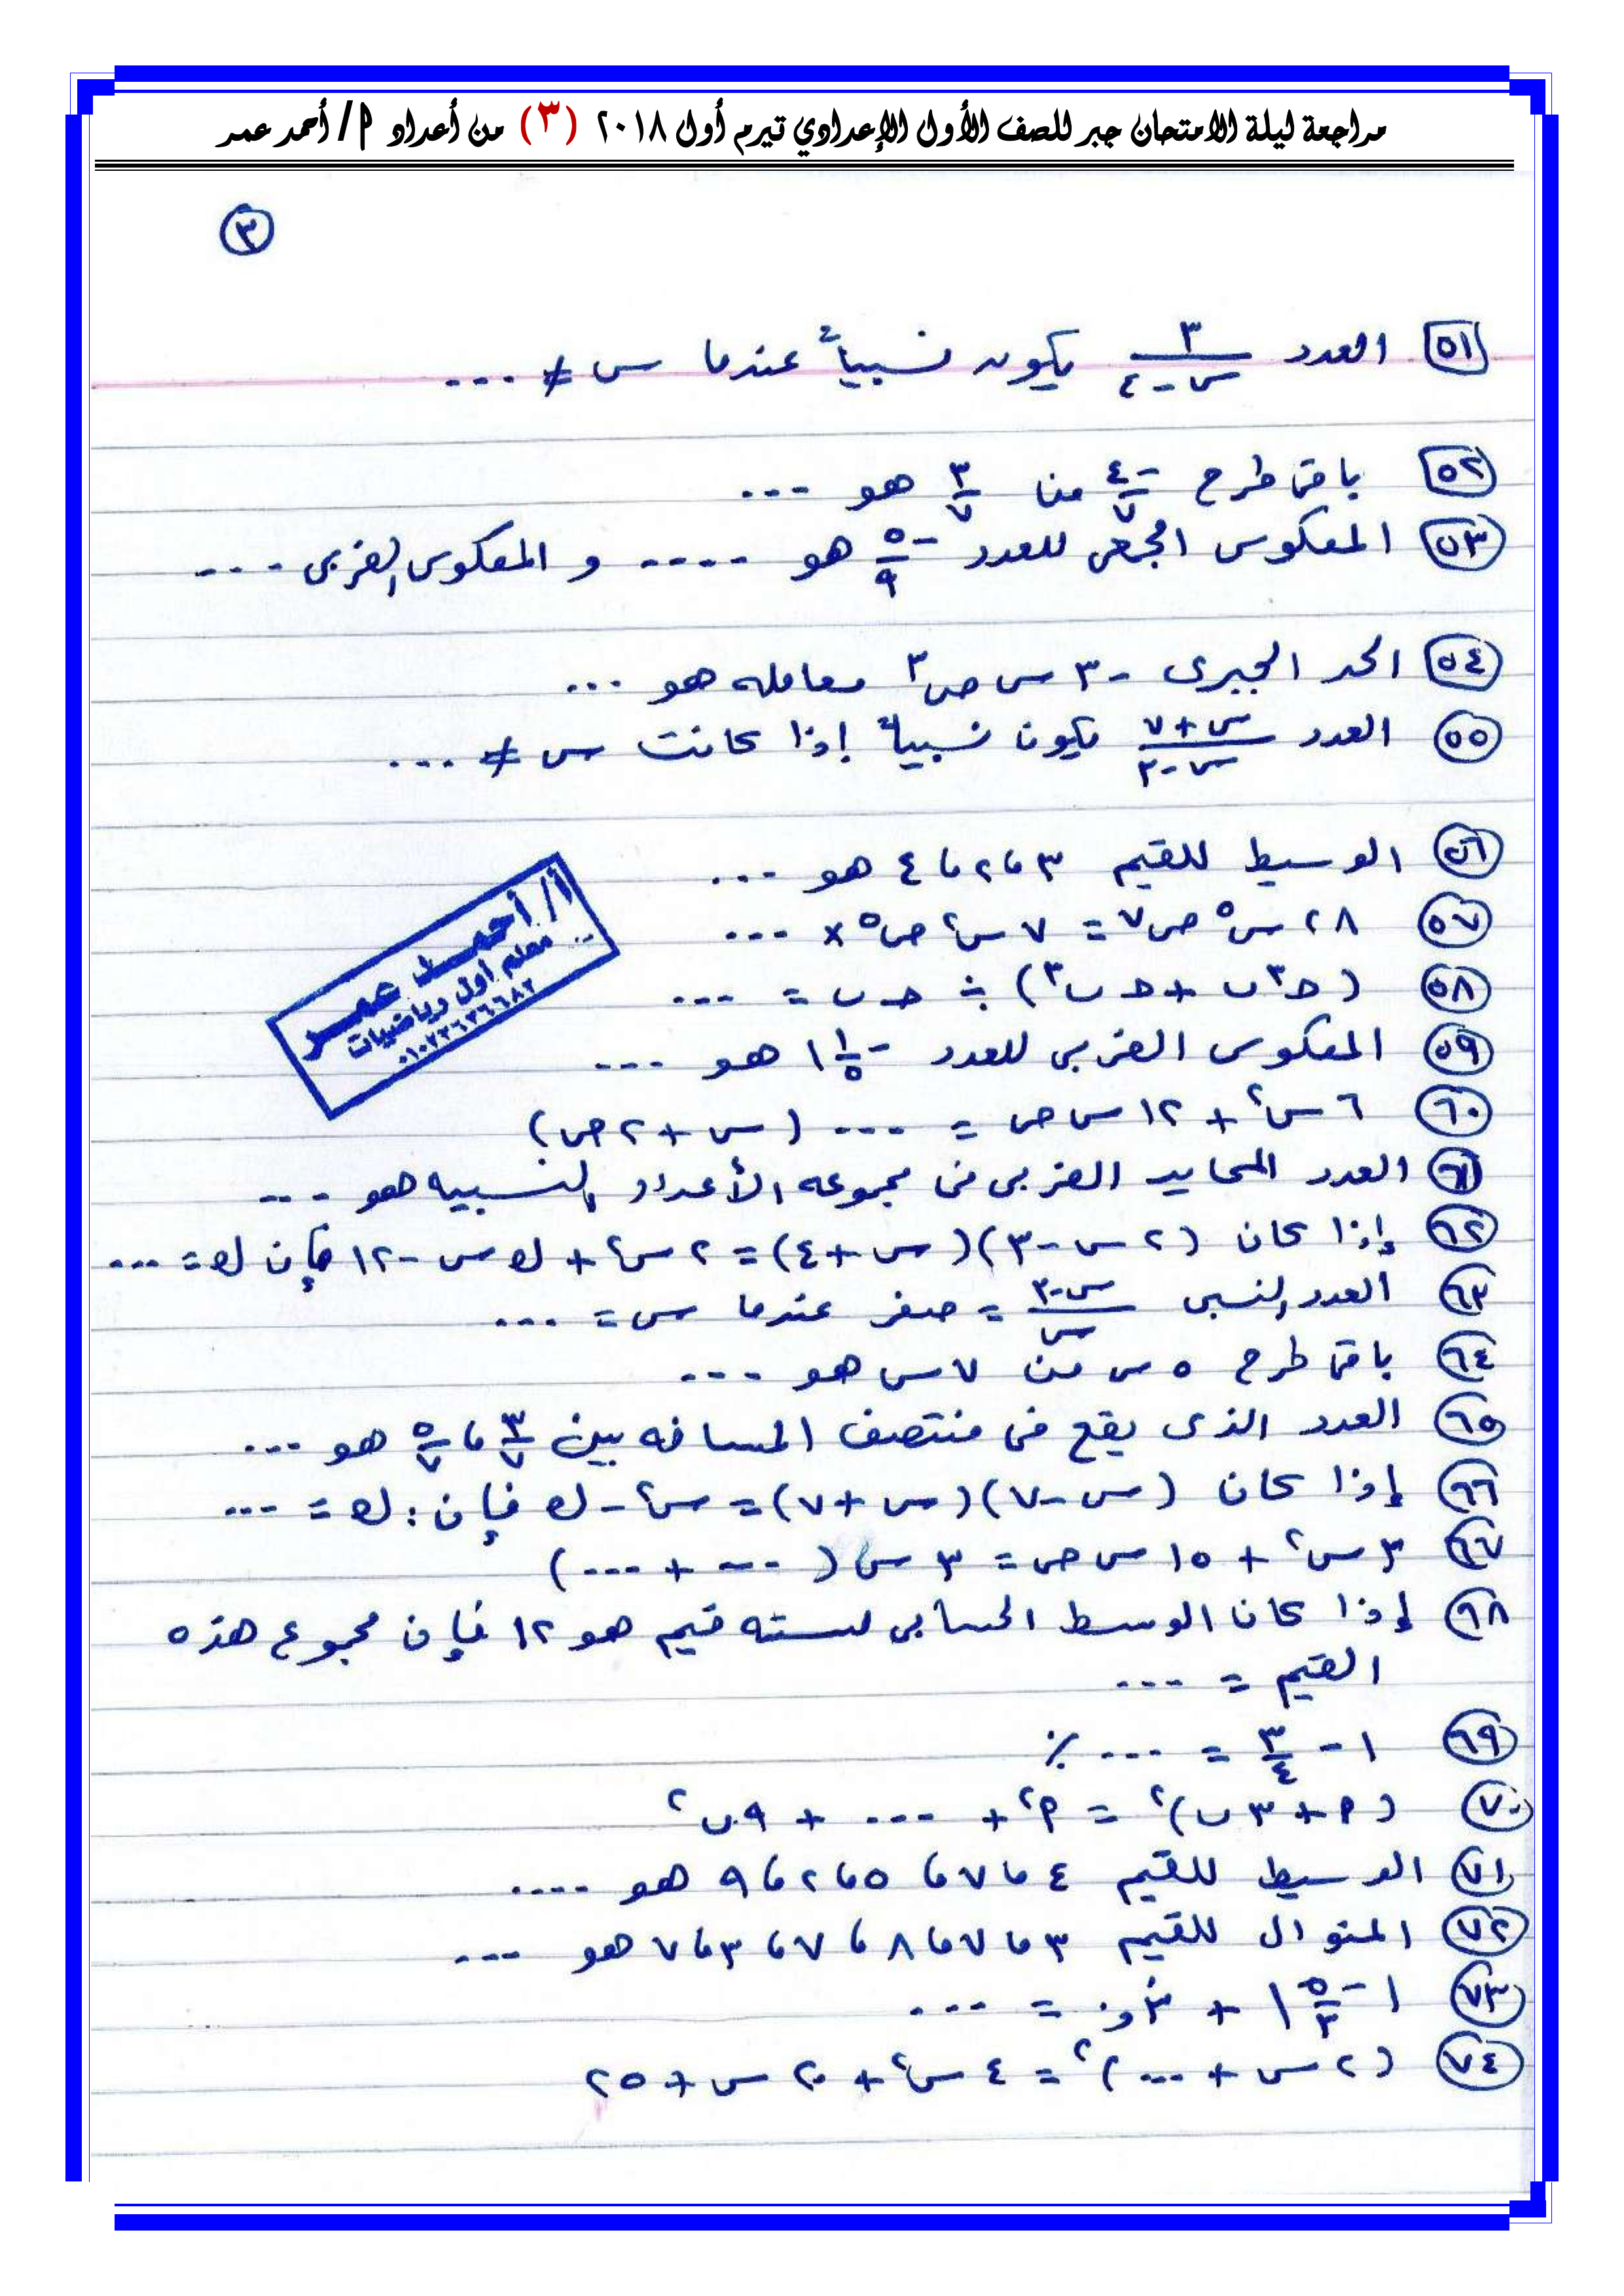 مراجعة ليلة الامتحان جبر للصف الأول الإعدادي تيرم أول ٢٠١٨ (٣) من أعداد م/ أحمد عمر
٣
٥١ العدد ٣/(س-٤) يكون نسبياً عندما س ≠ ...
٥٢ باقى طرح -٤/٧ من ٣/٧ هو ...
٥٣ المعكوس الجمعى للعدد -٥/٩ هو .... و المعكوس الضربى ...
٥٤ الحد الجبرى -٣ س ص٣ معامله هو ...
٥٥ العدد (س+٧)/(س-٣) يكون نسبياً إذا كانت س ≠ ...
٥٦ الوسيط للقيم ٣ ، ٢ ، ٤ هو ...
٥٧ ٢٨ س٥ ص٧ = ٧ س٢ ص٥ × ...
٥٨ (حـ٣ ب + حـ ب٣) ÷ حـ ب = ...
٥٩ المعكوس الضربى للعدد -١ ١/٥ هو ...
٦٠ ٦ س٢ + ١٢ س ص = ... (س + ٢ ص)
٦١ العدد المحايد الضربى فى مجموعه الأعداد النسبيه هو ...
٦٢ إذا كان (٢ س - ٣)(س + ٤) = ٢ س٢ + ك س - ١٢ فإن ك = ...
٦٣ العدد النسبى (س-٣)/س = صفر عندما س = ...
٦٤ باقى طرح ٥ س من ٧ س هو ...
٦٥ العدد الذى يقع فى منتصف المسافه بين ٣/٧ ، ٥/٧ هو ...
٦٦ إذا كان (س - ٧)(س + ٧) = س٢ - ك فإن : ك = ...
٦٧ ٣ س٢ + ١٥ س ص = ٣ س ( ... + ... )
٦٨ إذا كان الوسط الحسابى لسته قيم هو ١٢ فإن مجموع هذه
القيم = ...
٦٩ ١ - ٣/٤ = ... ٪
٧٠ (م + ٣ ب)٢ = م٢ + ... + ٩ ب٢
٧١ الوسيط للقيم ٤ ، ٧ ، ٥ ، ٢ ، ٩ هو ....
٧٢ المنوال للقيم ٣ ، ٧ ، ٨ ، ٧ ، ٣ ، ٧ هو ...
٧٣ |-٥/٣| + ٠,٣ْ = ...
٧٤ (٢ س + ...)٢ = ٤ س٢ + ٢٠ س + ٢٥
أ/ أحمد عمر
معلم أول رياضيات